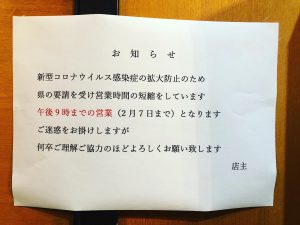 お知らせ
新型コロナウイルス感染症の拡大防止のため
県の要請を受け営業時間の短縮をしています
午後９時までの営業（２月７日まで）となります
ご迷惑をお掛けしますが
何卒ご理解ご協力のほどよろしくお願い致します
店主